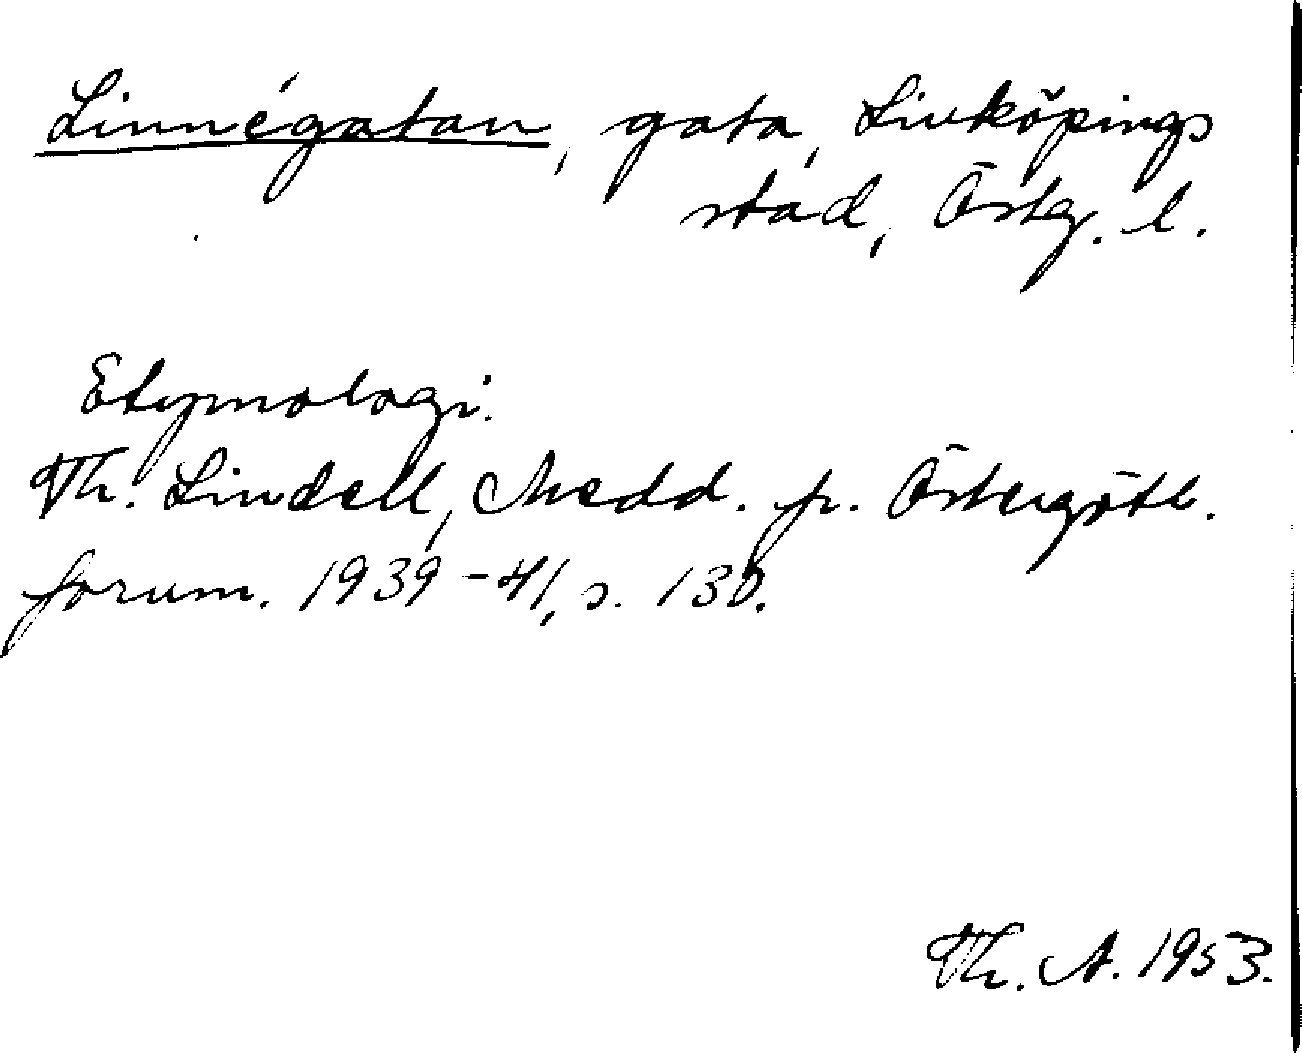 Linnégatan, gata, Linköpings
stad, Östg. l.
Etymologi.
Th. Lindell, Medd. fr. Östergötl.
fornm. 1939-41, s. 130.
Th. A. 1953.